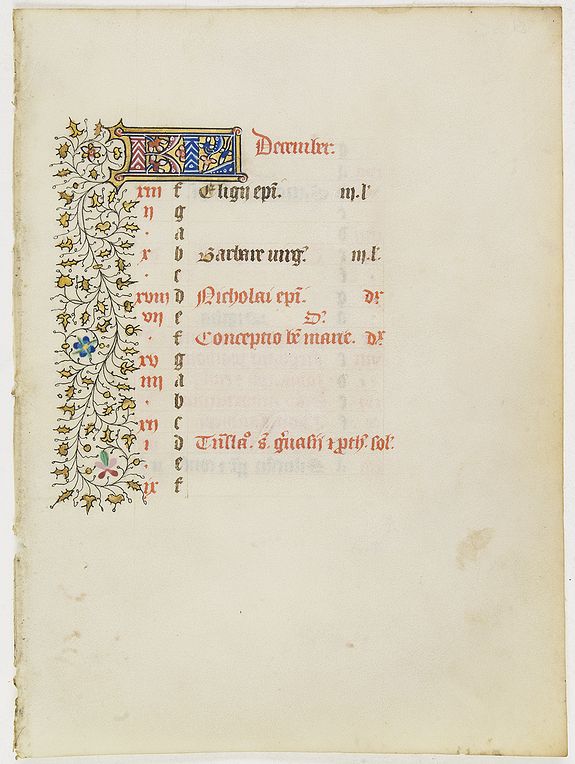 KL December.
xiii f Eligii ep̄i. iij. l'
ij g
· a
x b Barbare uirg'. iij. l'.
· c
xviij d Nicholai ep̄i. dx
vij e O'.
· f Conceptio bē marie. dx
xv g
iiij a
· b
xij c
i d Tn̄sla°. s̄. gͥuasij ⁊ ꝓth'. sol'.
· e
ix f